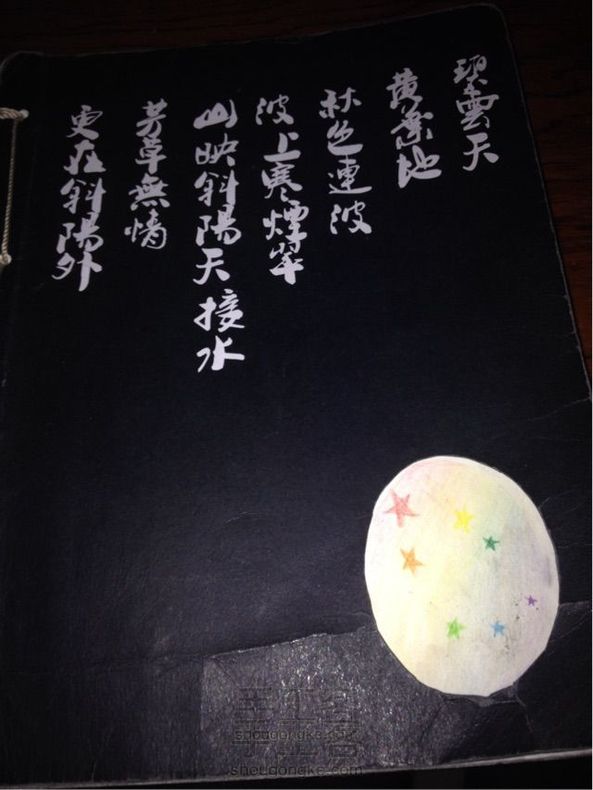 碧雲天
黄葉地
秋色連波
波上寒煙翠
山映斜陽天接水
芳草無情
更在斜陽外
手工客
shougongke.com
手工客
shougongke.com